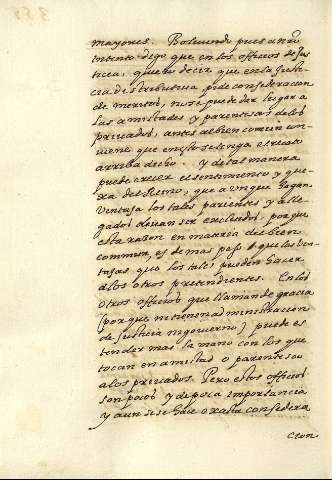 mayores. Bolviendo pues a nrõ
intento digo que en los officios de Jus
ticia, quiero decir que en la Justi
cia distributiva pide consideracion
de meritos, no se puede dar lugar a
las amistades y parentescos de los
privados, antes al bien comun con
viene que en esto se tenga el recato
arriba decho. y de tal manera
puede crecer el sentimiento y que
xa del Reino, que aunque hagan
ventaja los tales parientes y alle
gados devan ser excluidos. porque
esta raçon en materia del bien
commun, es de mas peso que las ven
tajas que los tales pueden hacer
a los otros pretendientes. En los
otros officios que llaman de gracia
(porque no tienen administracion
de Justicia ni govierno) puedese
tender mas la mano con los que
tocan en amistad o parentesco
a los privados. Pero estos officios
son pocos y de poca importancia
y aun si se hace oxasta considera
cion